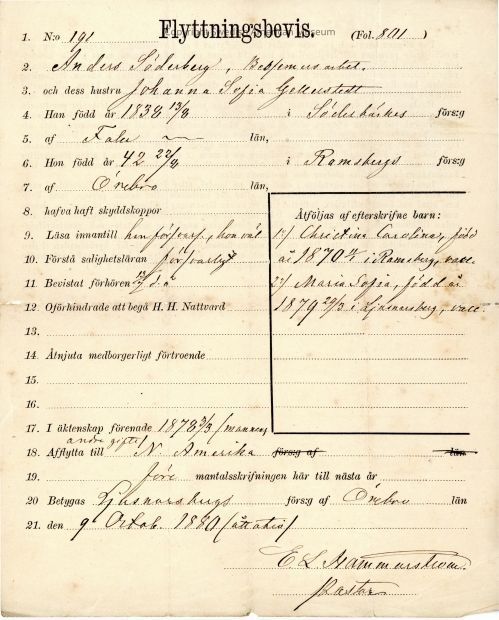 Flyttningsbevis.
1. N:o 191 (Fol. 801 )
2. Anders Söderberg, Bessemerarbet.
3. och dess hustru Johanna Sofia Gellerstedt
4. Han född år 1838 13/8 i Söderbärkes förs:g
5. af Falu län,
6. Hon född år 42 22/8 i Ramsbergs förs:g
7. af Örebro län,
8. hafva haft skyddskoppor
9. Läsa innantill han förswarl, hon väl
10. Förstå salighetsläran försvarligt
11. Bevistat förhören d. å
12. Oförhindrade att begå H. H. Nattvard
13.
14. Åtnjuta medborgerligt förtroende
15.
16.
Åtföljas af efterskrifne barn:
1) Christina Carolina, född
år 1870 i Ramsberg, vacc.
2) Maria Sofia, född år
1879 29/3 i Ljusnarsberg, vacc.
17. I äktenskap förenade 1878 3/3 (mannen
andra gifte)
18. Afflytta till N. Amerika förs:g af län
19. före mantalsskrifningen här till nästa år
20. Betygas Ljusnarsbergs förs:g af Örebro län
21. den 9 Octob. 1880 (åttatio)
E. L. Hammarström.
Pastor